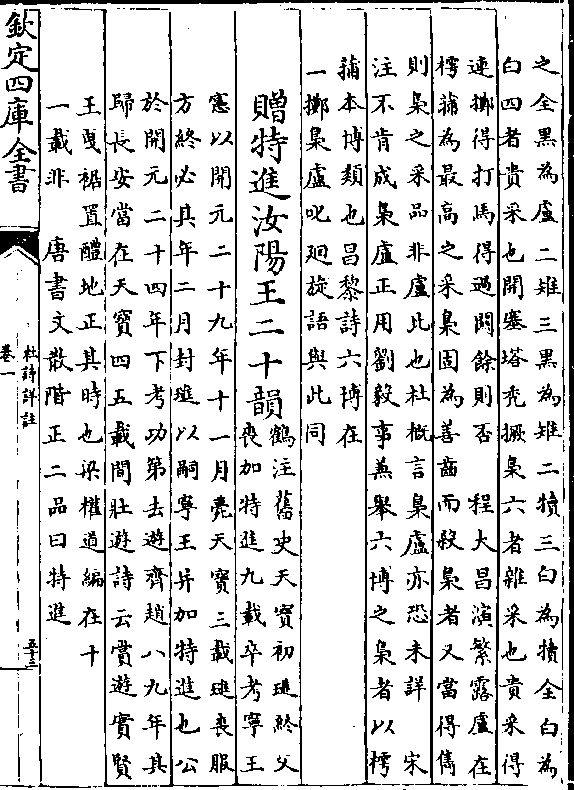 之全黑為盧二雉三黑為雉二犢三白為犢全白為
白四者貴采也開塞塔禿撅梟六者雜采也貴采得
連擲得打馬得過關餘則否 程大昌演繁露盧在
樗蒱為最高之采梟固為善齒而殺梟者又當得雋
則梟之采品非盧此也杜概言梟盧亦恐未詳 宋
注不肯成梟盧正用劉毅事兼舉六博之梟者以樗
蒱本博類也昌黎詩六博在
一擲梟盧叱廻旋語與此同
贈特進汝陽王二十韻
鶴注舊史天寶初璡終父
喪加特進九載卒考寧王
憲以開元二十九年十一月薨天寶三載璡喪服
方終必其年二月封璡以嗣寧王并加特進也公
於開元二十四年下考功第去遊齊趙八九年其
歸長安當在天寶四五載間壯遊詩云賞遊實賢
王曳裾置醴地正其時也梁權道編在十
一載非 唐書文散階正二品曰特進
欽定四庫全書
杜詩詳註
卷一
五十三